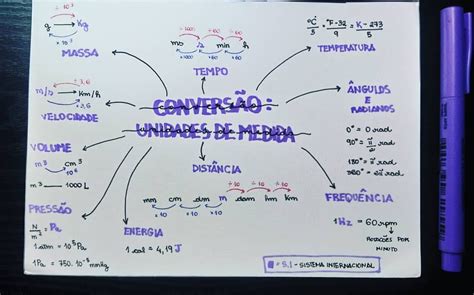 ÷ 10³
g Kg
× 10³
MASSA
÷1000 ÷60 ÷60
ms s min h
×1000 ×60 ×60
TEMPO
°C = °F-32 = K-273
5 9 5
TEMPERATURA
3,6
m/s Km/h
3,6
VELOCIDADE
CONVERSÃO:
UNIDADES DE MEDIDA
ÂNGULOS
E
RADIANOS
0° = 0 rad
90° = π/2 rad
180° = π rad
360° = 2π rad
VOLUME
m³ cm³
10⁶
m³ 1000 L
DISTÂNCIA
÷10 ÷10 ÷10
mm cm dm m dam hm Km
×10 ×10 ×10
PRESSÃO
N/m² = Pa
1 atm = 10⁵ Pa
1 Pa = 750·10⁻⁵ mmHg
ENERGIA
1 cal = 4,19 J
FREQUÊNCIA
1 Hz = 60 rpm
ROTAÇÕES POR
MINUTO
= S.I - SISTEMA INTERNACIONAL